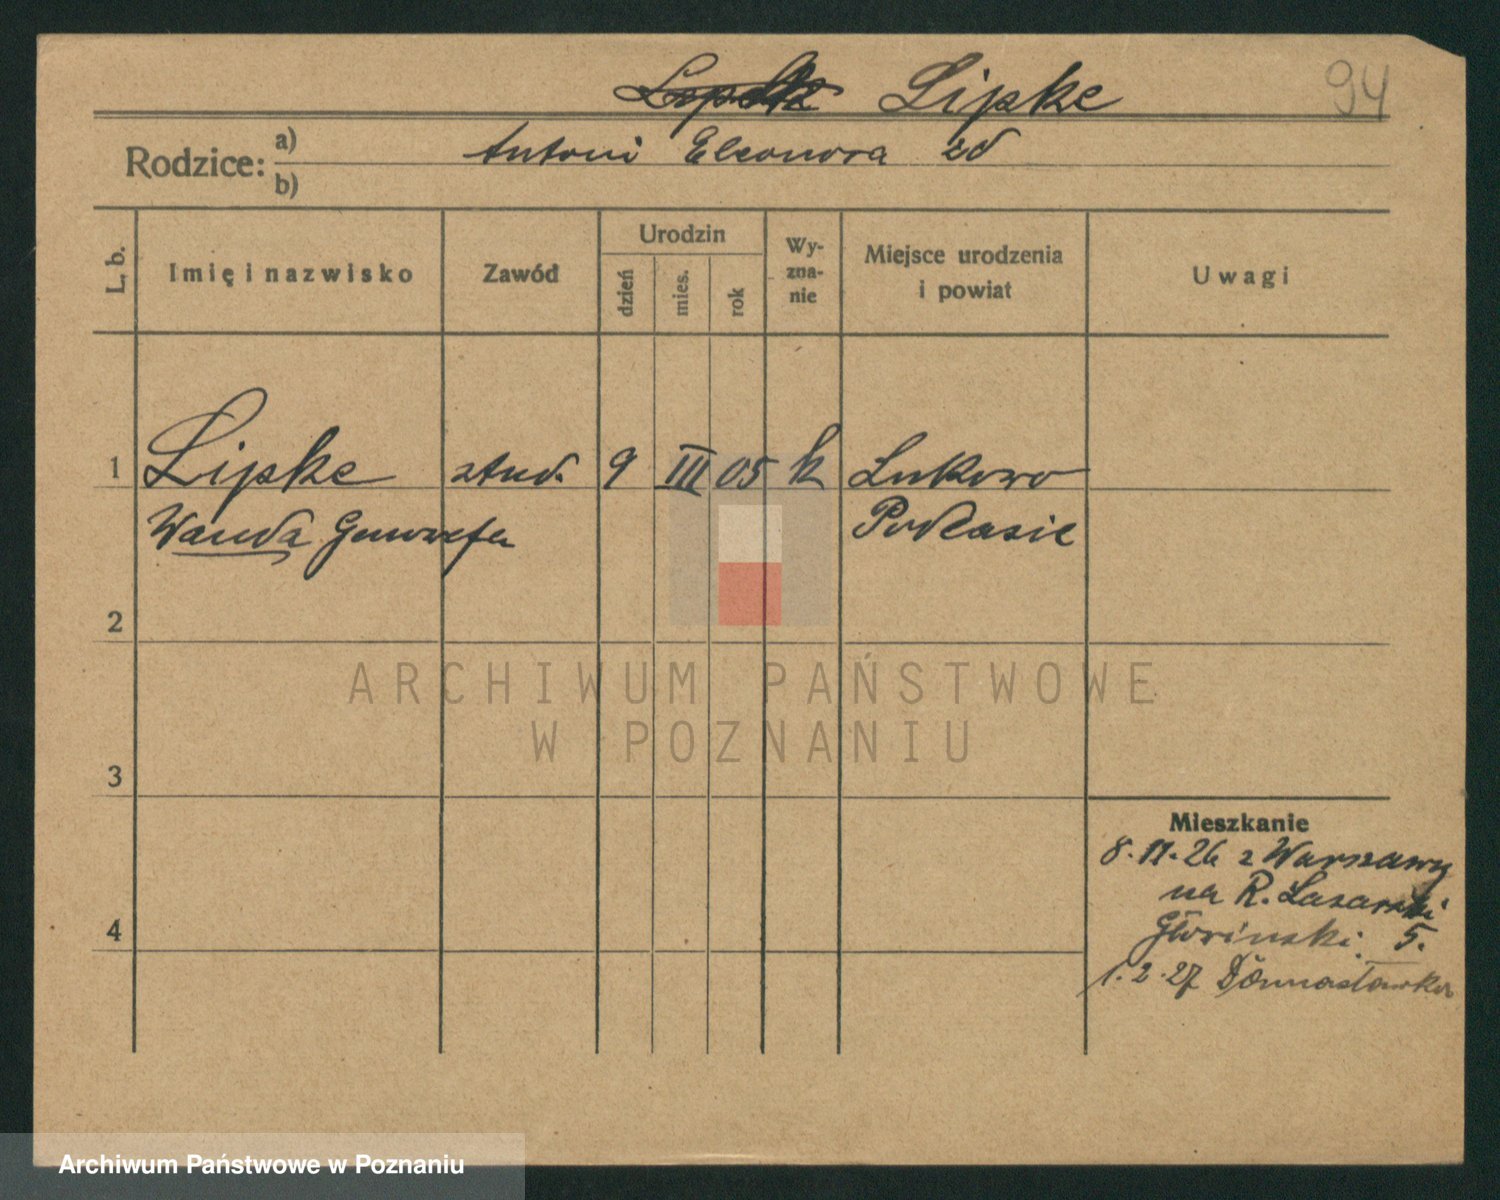 Lipke
94
Rodzice:
a) Antoni Eleonora zd
b)
L. b.
Imię i nazwisko
Zawód
Urodzin
dzień
mies.
rok
Wy-
zna-
nie
Miejsce urodzenia
i powiat
Uwagi
1 Lipke stud. 9 III 05 k Lukowo
Wanda Genowefa Podlasie
2
3
4
Mieszkanie
8.11.26 z Warszawy
na R. Łazarski
5.
1.2.27
ARCHIWUM PAŃSTWOWE
W POZNANIU
Archiwum Państwowe w Poznaniu